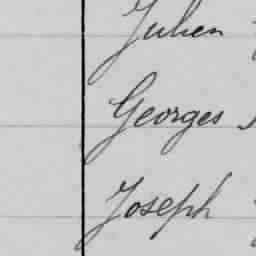 Julien
Georges
Joseph